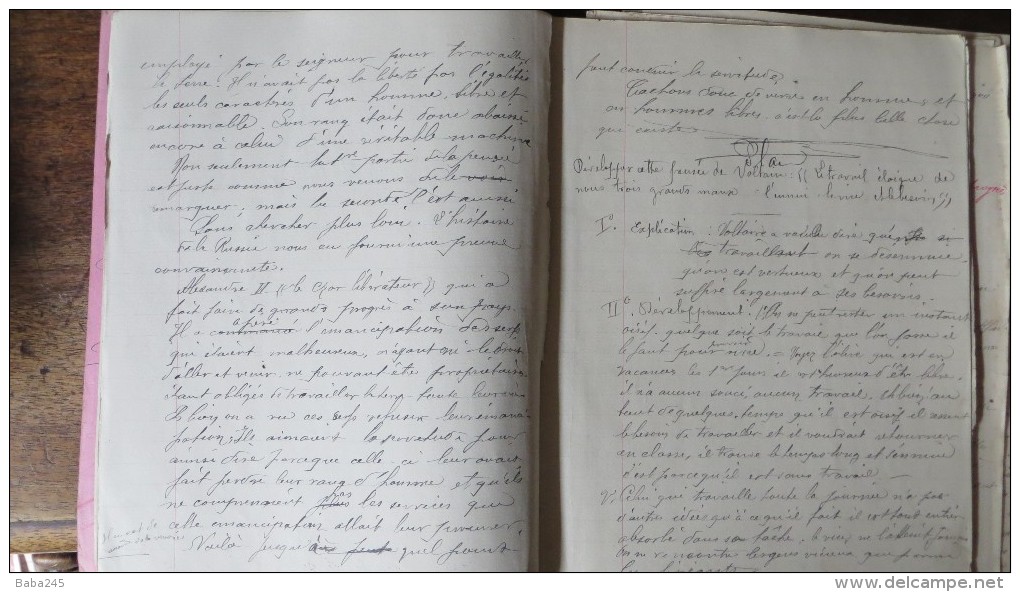 employé par le seigneur pour travailler
la terre. Il n'avait pas la liberté pas l'égalité
les seuls caractères d'un homme, libre et
raisonnable. Son rang était donc abaissé
encore à celui d'une véritable machine
Non seulement la 1re partie de la pensée
est juste comme nous venons de le
remarquer, mais la seconde l'est aussi
Sans chercher plus loin. L'histoire
de la Russie nous en fournit une preuve
convaincante.
Alexandre II "le Czar libérateur" qui a
fait faire de grands progrès à son pays.
Il a opéré l'émancipation des serfs
qui étaient malheureux, n'ayant ni le droit
d'aller et venir, ne pouvant être propriétaire
étant obligés de travailler la terre toute leur vie
Eh bien on a vu ces serfs refuser leur émanci
pation. Ils aimaient la servitude pour
ainsi dire parce que celle ci leur avait
fait perdre leur rang d'homme et qu'ils
ne comprenaient pas les services que
cette émancipation allait leur procurer
Voilà jusqu'à quel point
peut conduire la servitude.
Tâchons donc de vivre en hommes et
en hommes libres. c'est la plus belle chose
que existe
Plan
Développer cette pensée de Voltaire: "Le travail éloigne de
nous trois grands maux: l'ennui le vice et le besoin",
I° Explication: Voltaire a voulu dire que si
travaillant on se désennuie
qu'on est vertueux et qu'on peut
suffire largement à ses besoins.
II° Développement. 1° On ne peut rester un instant
oisif. quelque soit le travail que l'on fasse il
le faut pour vivre. = Voyez l'élève qui est en
vacances les 1ers jours il est heureux d'être libre,
il n'a aucun souci, aucun travail. Eh bien, au
bout de quelque temps qu'il est oisif il ressent
le besoin de travailler et il voudrait retourner
en classe, il trouve le temps long et s'ennuie
c'est parce qu'il est sans travail —
2°. Celui que travaille toute la journée n'a pas
d'autres idées qu'à ce qu'il fait il est tout entier
absorbé dans sa tâche, le vice ne l'atteint jamais
On ne rencontre
Baba245
delcampe.net